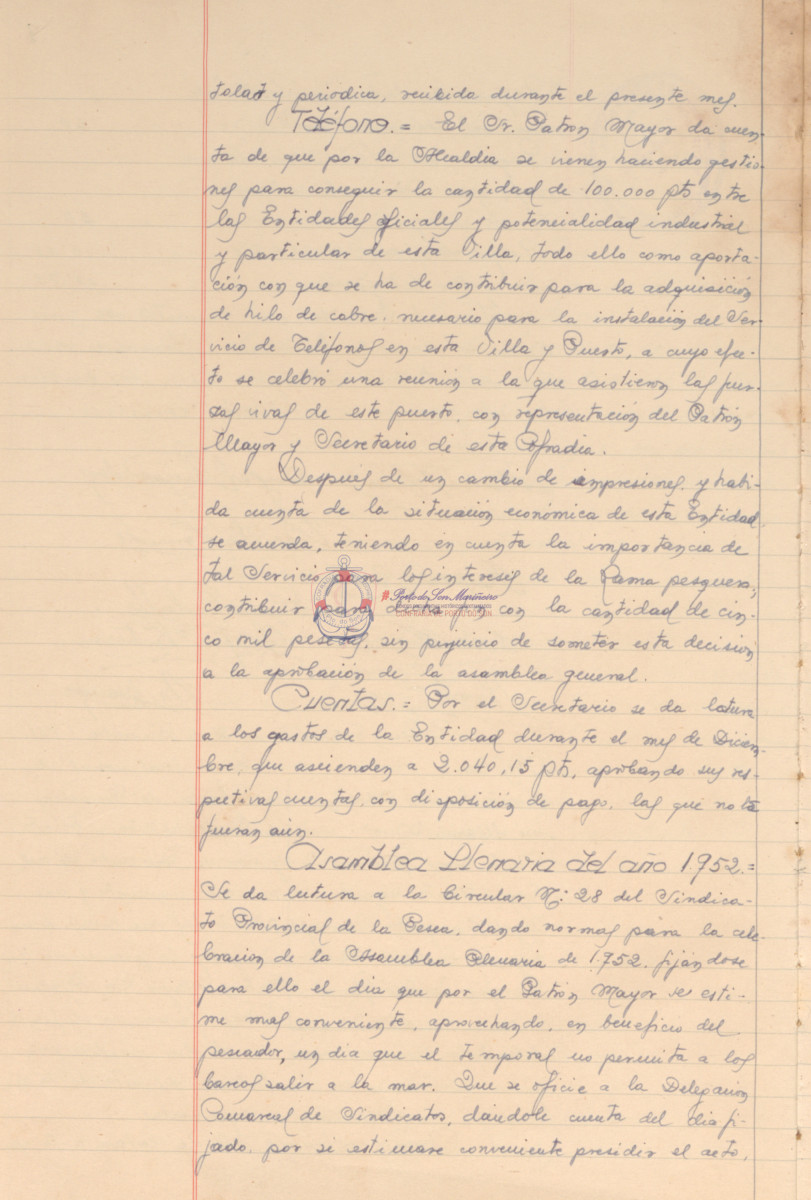 y periodica, recibida durante el presente mes.
Teléfono.= El Sr. Patrón Mayor da cuen-
ta de que por la Alcaldía se vienen haciendo gestio-
nes para conseguir la cantidad de 100.000 pts entre
las Entidades oficiales y potencialidad industrial
y particular de esta Villa, todo ello como aporta-
ción con que se ha de contribuir para la adquisición
de hilo de cobre necesario para la instalación del Ser-
vicio de Teléfonos en esta Villa y Puerto, a cuyo efec-
to se celebró una reunión a la que asistieron las fuer-
zas vivas de este puerto, con representación del Patrón
Mayor y Secretario de esta Cofradia.
Después de un cambio de impresiones y habi-
da cuenta de la situación económica de esta Entidad
se acuerda, teniendo en cuenta la importancia de
tal Servicio para los intereses de la Rama pesquera,
contribuir para dicho fin con la cantidad de cin-
co mil pesetas, sin perjuicio de someter esta decision
a la aprobación de la asamblea general.
Cuentas.= Por el Secretario se da lectura
a los gastos de la Entidad durante el mes de Diciem-
bre, que ascienden a 2.040,15 pts, aprobando sus res-
pectivas cuentas, con disposición de pago, las que no lo
fueran aún.
Asamblea Plenaria del año 1952.=
Se da lectura a la Circular Nº 28 del Sindica-
to Provincial de la Pesca, dando normas para la cele-
bración de la Asamblea Plenaria de 1952, fijándose
para ello el dia que por el Patrón Mayor se esti-
me mas conveniente, aprovechando, en beneficio del
pescador, un dia que el temporal no permita a los
barcos salir a la mar. Que se oficie a la Delegación
Comarcal de Sindicatos, dándole cuenta del dia fi-
jado, por si estimare conveniente presidir el acto,
Porto do Son Mariñeiro